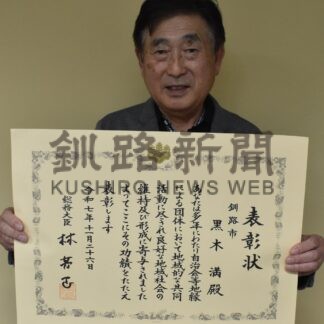 表彰状
釧路市
黒木 満殿
あなたは多年にわたり自治会等地縁
による団体において地域的な共同
活動に尽され良好な地域社会の
維持及び形成に寄与されました
よってここにその功績をたたえ
表彰します
令和七年十一月二十六日
総務大臣 林 芳正
釧路新聞
KUSHIRO NEWS WEB